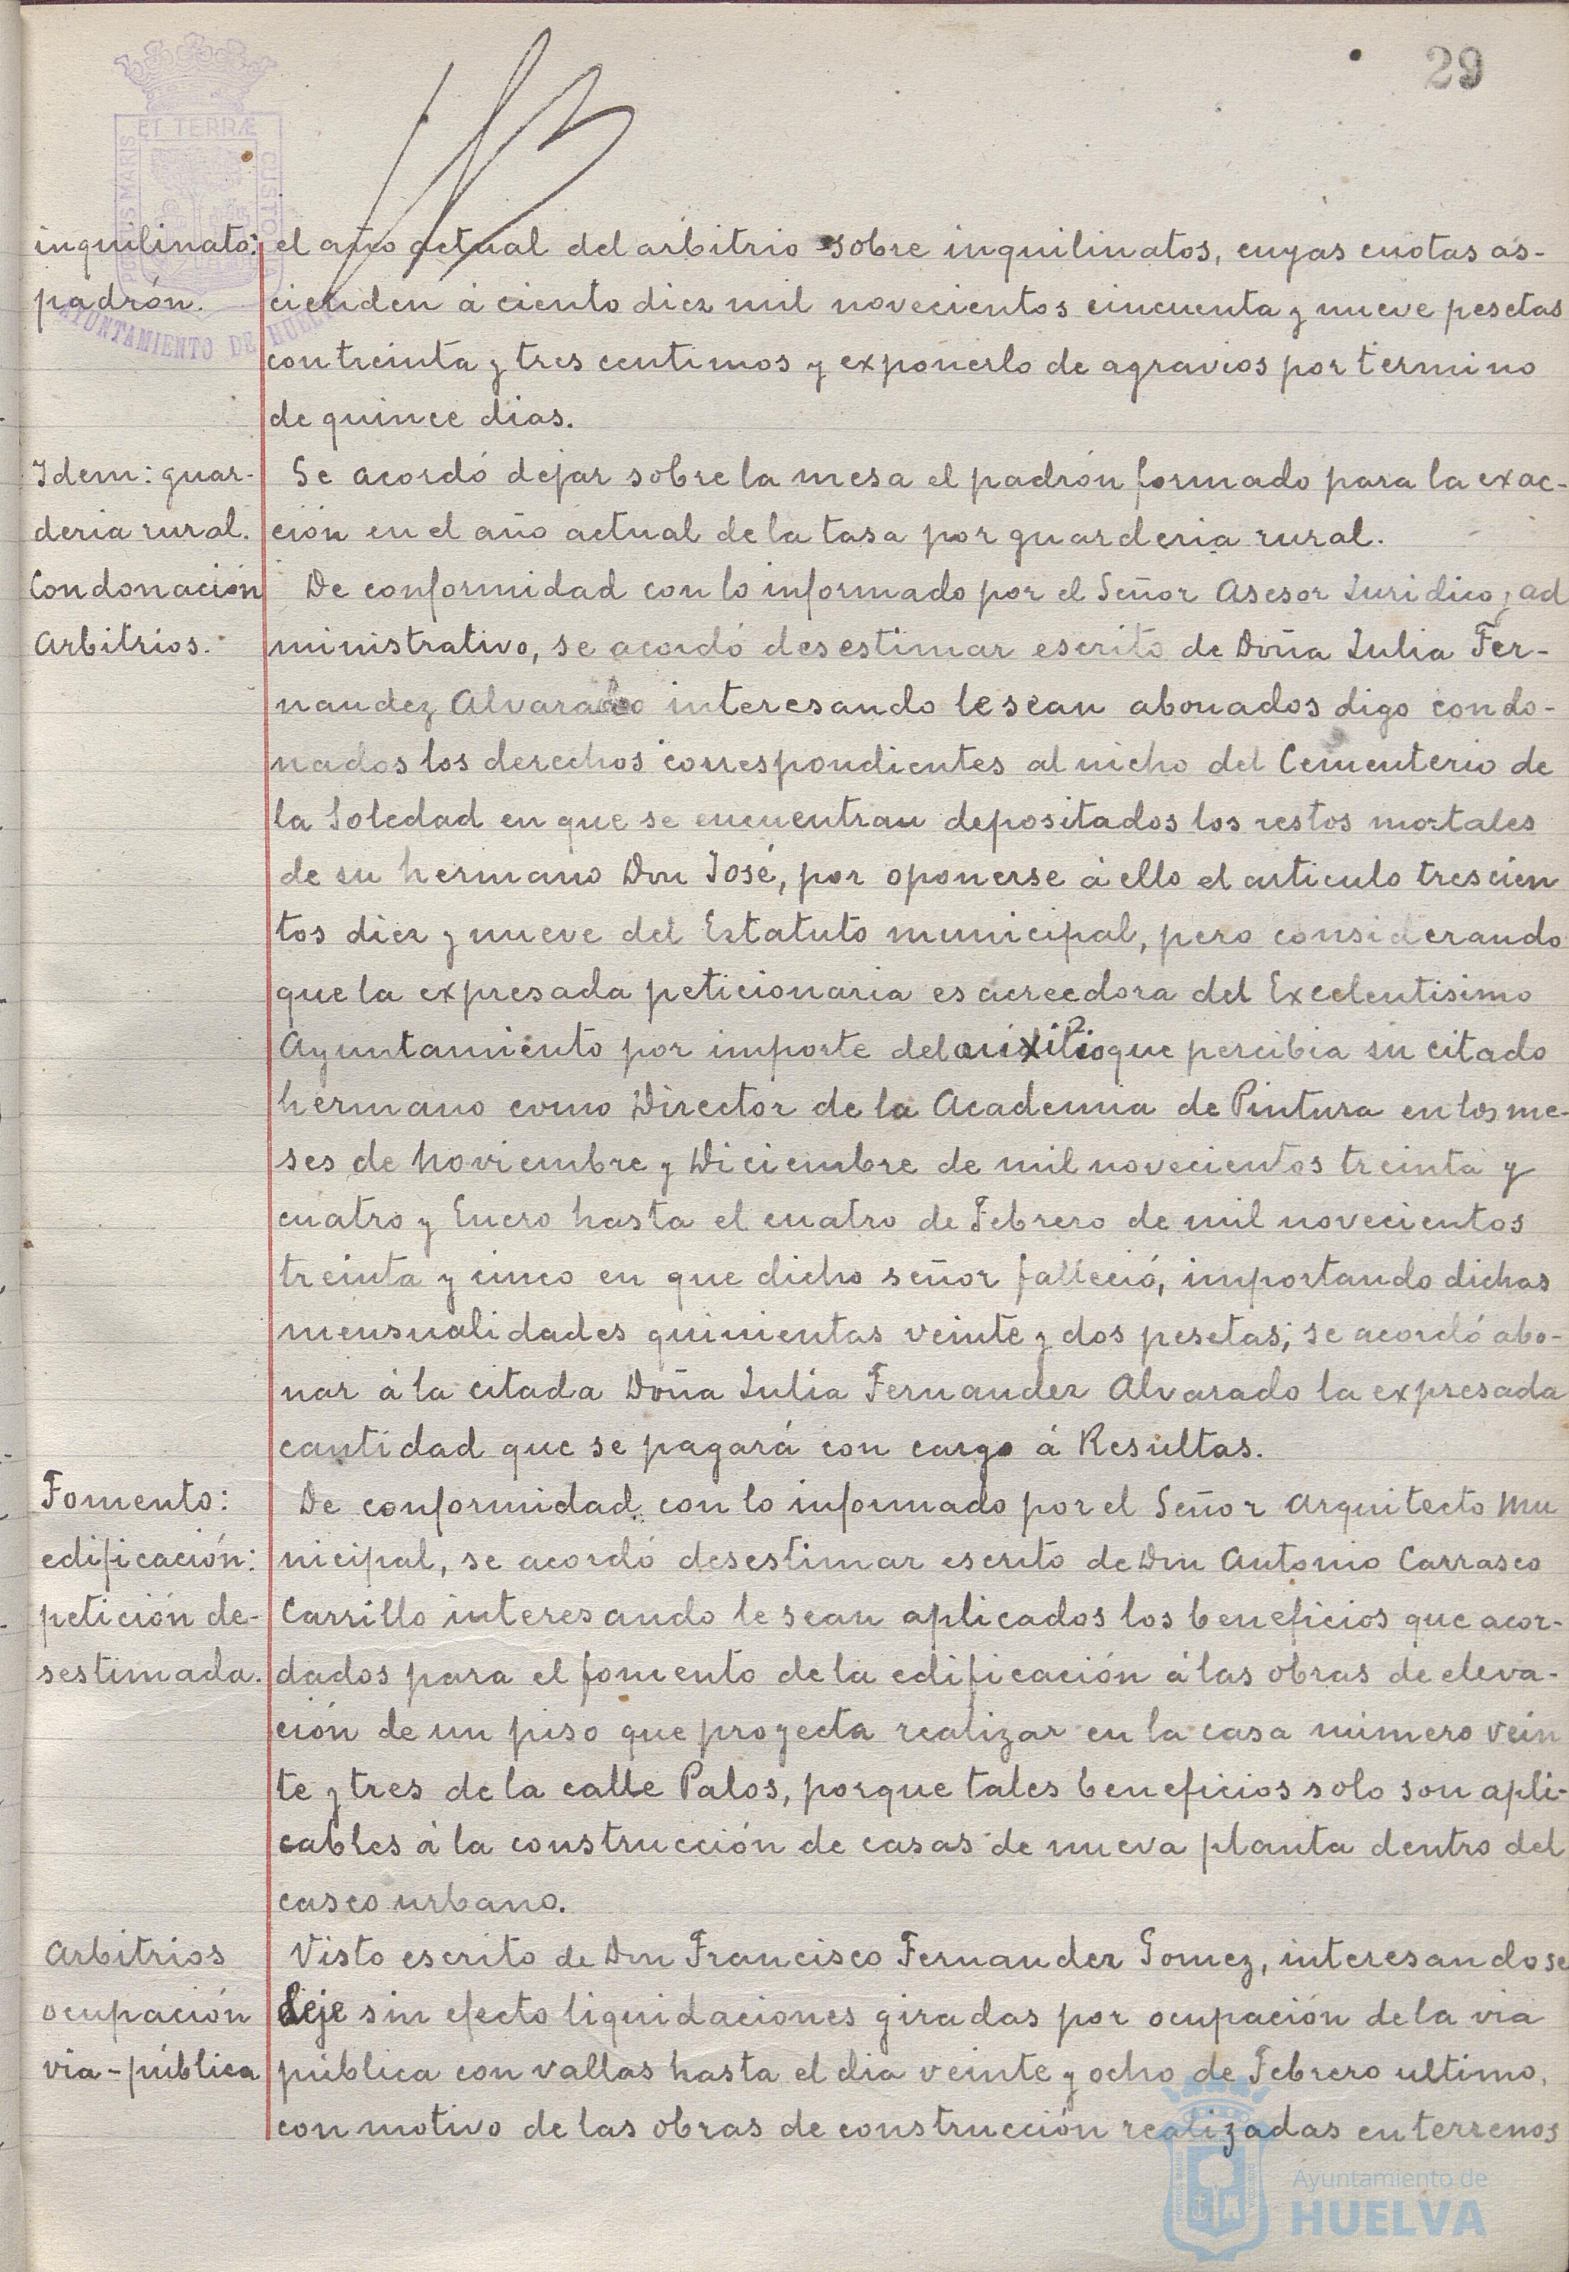 29
ET TERRÆ
PORTUS MARIS
CUSTODIA
AYUNTAMIENTO DE HUELVA
inquilinato: el año actual del arbitrio sobre inquilinatos, cuyas cuotas as-
padrón. cienden á ciento diez mil novecientos cincuenta y nueve pesetas
con treinta y tres centimos y exponerlo de agravios por termino
de quince dias.
Idem: guar- Se acordó dejar sobre la mesa el padrón formado para la exac-
deria rural. ción en el año actual de la tasa por guarderia rural.
Condonación De conformidad con lo informado por el Señor Asesor Juridico y ad
Arbitrios. ministrativo, se acordó desestimar escrito de Doña Julia Fer-
nandez Alvarado interesando le sean abonados digo condo-
nados los derechos correspondientes al nicho del Cementerio de
la Soledad en que se encuentran depositados los restos mortales
de su hermano Don José, por oponerse á ello el articulo trescien
tos diez y nueve del Estatuto municipal, pero considerando
que la expresada peticionaria es acreedora del Excelentisimo
Ayuntamiento por importe del auxilio que percibia su citado
hermano como Director de la Academia de Pintura en los me-
ses de Noviembre y Diciembre de mil novecientos treinta y
cuatro y Enero hasta el cuatro de Febrero de mil novecientos
treinta y cinco en que dicho señor falleció, importando dichas
mensualidades quinientas veinte y dos pesetas; se acordó abo-
nar á la citada Doña Julia Fernandez Alvarado la expresada
cantidad que se pagará con cargo á Resultas.
Fomento: De conformidad con lo informado por el Señor Arquitecto Mu
edificación: nicipal, se acordó desestimar escrito de Don Antonio Carrasco
petición de- Carrillo interesando le sean aplicados los beneficios que acor-
sestimada. dados para el fomento de la edificación á las obras de eleva-
ción de un piso que proyecta realizar en la casa número vein
te y tres de la calle Palos, porque tales beneficios solo son apli-
cables á la construcción de casas de nueva planta dentro del
casco urbano.
Arbitrios Visto escrito de Don Francisco Fernandez Gomez, interesando se
ocupación deje sin efecto liquidaciones giradas por ocupación de la via
via-pública pública con vallas hasta el dia veinte y ocho de Febrero ultimo,
con motivo de las obras de construcción realizadas en terrenos
Ayuntamiento de
HUELVA